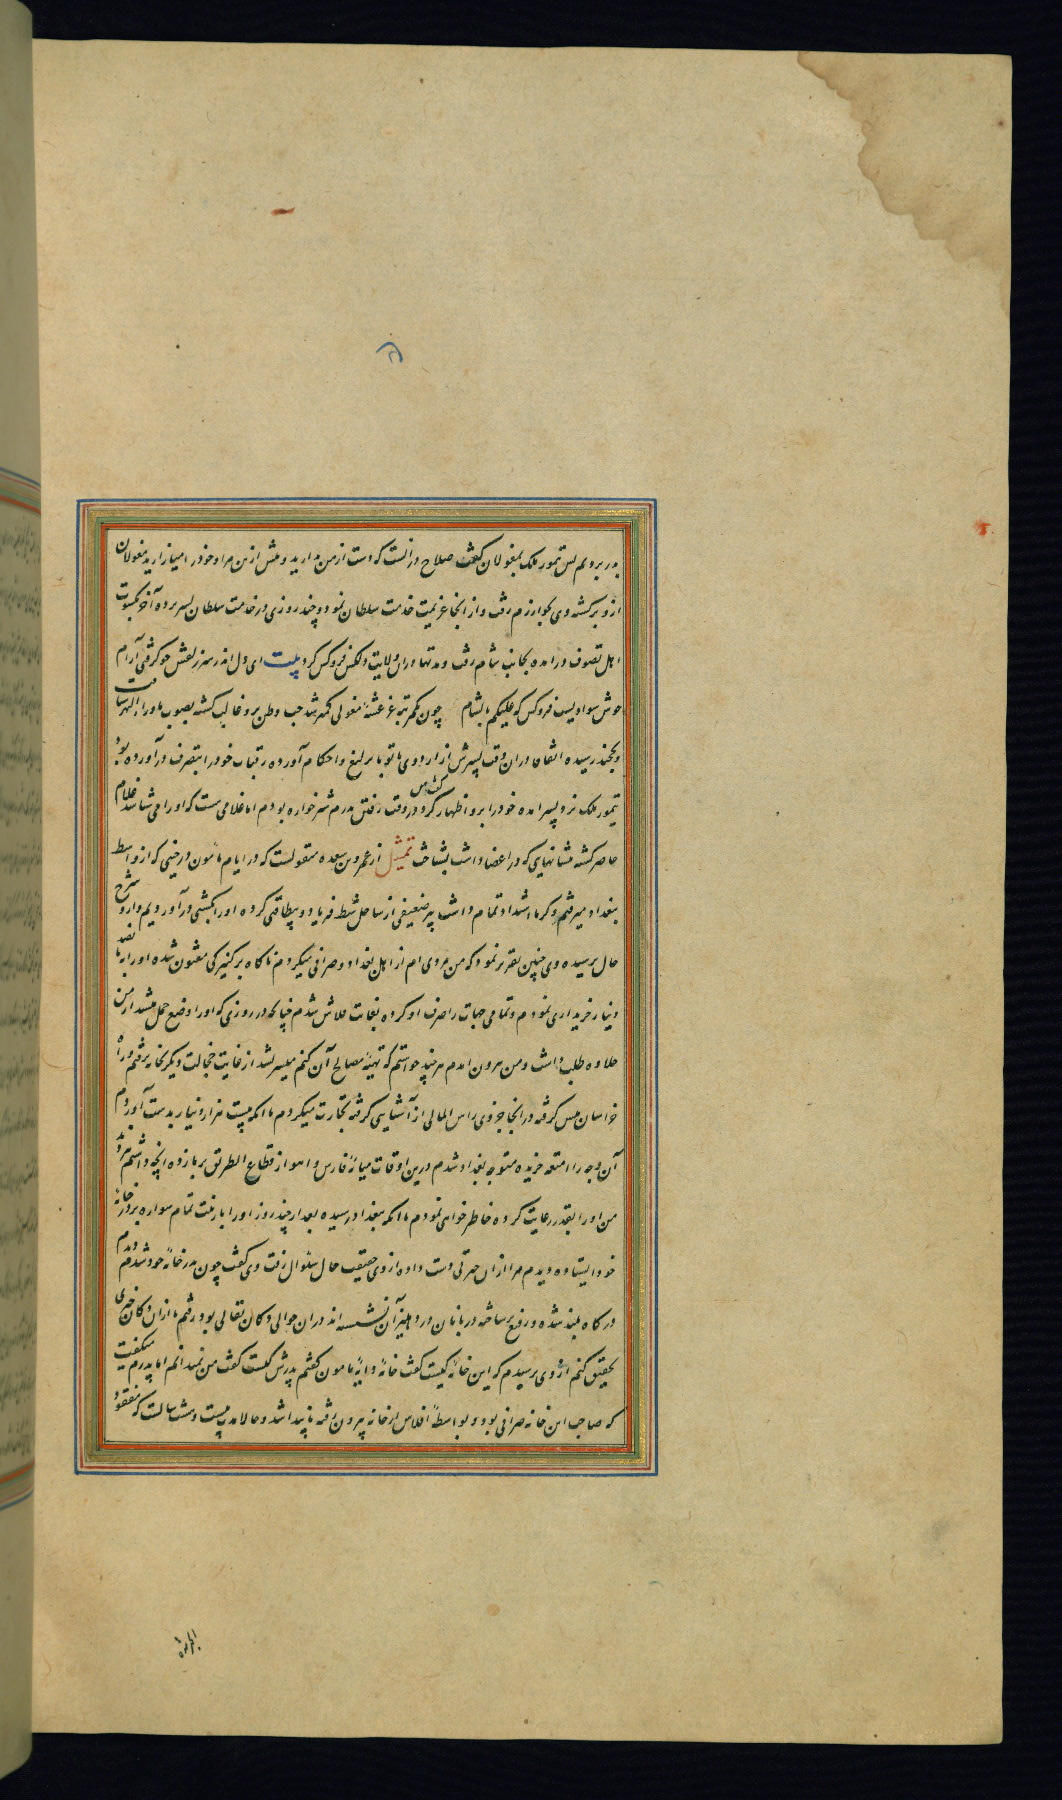 بدر بردیم پس تیمور ملک بمغولان گفت صلاح در آنست که دست از من بدارید و بیش ازین مرا و خود را میازارید مغولان
ازو برگشته وی بخوارزم رفت و از آنجا عزیمت خدمت سلطان نمود و چند روزی در خدمت سلطان بسر برده آخر بکسوت
اهل تصوف درآمده بجانب شام رفت و مدتها در آن ولایت بیت ای دل اندر سر زلفش چو گرفتی آرام
خوش سوادیست فروکش که علیکم بالشام چون مغولی کمتر شد حب وطن برو غالب گشته بصوب ماوراءالنهر شتافت
و بخجند رسیده اتفاقا در آن وقت پسرش از اردوی باتو با یرلیغ و احکام آورده رقبات خود را بتصرف درآورده بود
تیمور ملک نزد پسر آمده خود را برو اظهار کرد گفت من در وقت رفتن پدرم شیرخواره بودم اما غلامی هست که او را می شناسد غلام
حاضر گشته بنشانهایی که در اعضا داشت بشناخت تمثیل از عمرو بن مسعده منقولست که در ایام مأمون در حینی که از واسط
ببغداد میرفتم و گرما اشتداد تمام داشت پیر ضعیفی از ساحل شط فریاد و بیطاقتی کرده او را بکشتی درآوردیم و ازو شرح
حال پرسیده وی چنین تقریر نمود که من مردی ام از اهل بغداد و صرافی میکردم ناگاه بر کنیزکی مفتون شده او را به پانصد
دینار خریداری نمودم و تمامی جهات را صرف او کرده بغایت مفلس شدم چنانکه در روزی که او را وضع حمل میشد از من
حلاوه طلب داشت و من بیرون آمدم هرچند خواستم که تهیهٔ مصالح آن کنم میسر نشد از غایت خجالت دیگر بخانه نرفتم و راه
خراسان پیش گرفته در آنجا جزوی راس المالی از آشنایی گرفته تجارت میکردم تا آنکه بیست هزار دینار بدست آوردم
آن وجه را امتعه خریده متوجه بغداد شدم درین اوقات میانهٔ فارس و اهواز قطاع الطریق بر ما زده آنچه داشتم بردند
من او را بقدر رعایت کرده خاطرخواهی نمودم تا آنکه ببغداد رسیده بعد از چند روز او را با زینت تمام سواره بر در خانهٔ
خود ایستاده دیدم مرا از آن حیرتی دست داده از وی حقیقت حال سئوال رفت وی گفت چون بدر خانهٔ خود شدم دیدم
درگاه بلند شده و رفیع برساخته و دربانان در دهلیز آن نشسته اند در آن حوالی دکان بقالی بود رفتم تا از آن دکان خبری
تحقیق کنم از وی پرسیدم که این خانهٔ کیست گفت خانهٔ دایهٔ مأمون گفتم پدرش کیست گفت من نمیدانم اما پدرم میگفت
که صاحب این خانه صرافی بود و بواسطهٔ افلاس از خانه بیرون رفته ناپیدا شد و حالا مدت بیست و هشت سالست که مفقود